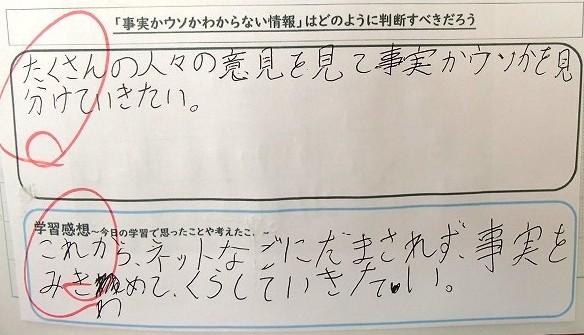 「事実かウソかわからない情報」はどのように判断すべきだろう
たくさんの人々の意見を見て事実かウソかを見
分けていきたい。
学習感想～今日の学習で思ったことや考えたこ
これから、ネットなどにだまされず、事実を
みきわめて、くらしていきたい。